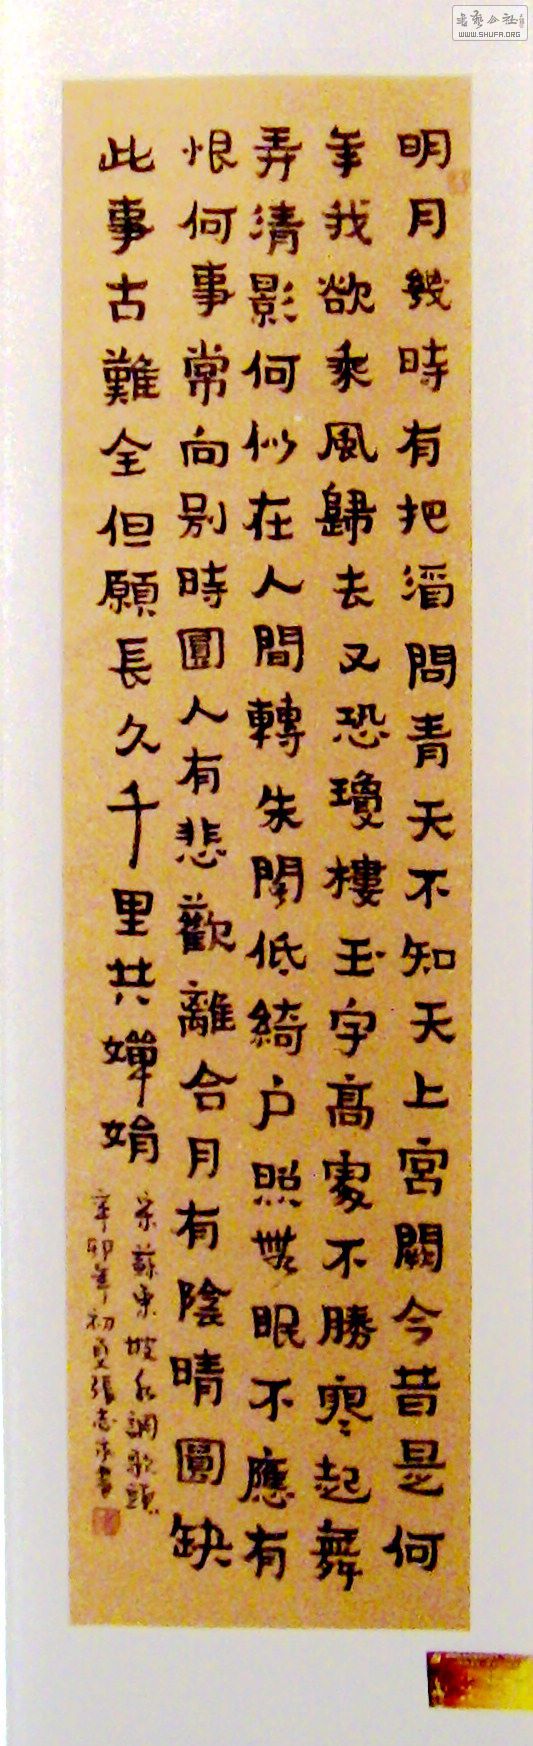 明月幾時有把酒問青天不知天上宮闕今昔是何
年我欲乘風歸去又恐瓊樓玉宇高處不勝寒起舞
弄清影何似在人間轉朱閣低綺户照無眠不應有
恨何事常向别時圓人有悲歡離合月有陰晴圓缺
此事古難全但願長久千里共嬋娟
宋蘇東坡水調歌頭
辛卯年初夏張志書
書藝公社
WWW.SHUFA.ORG